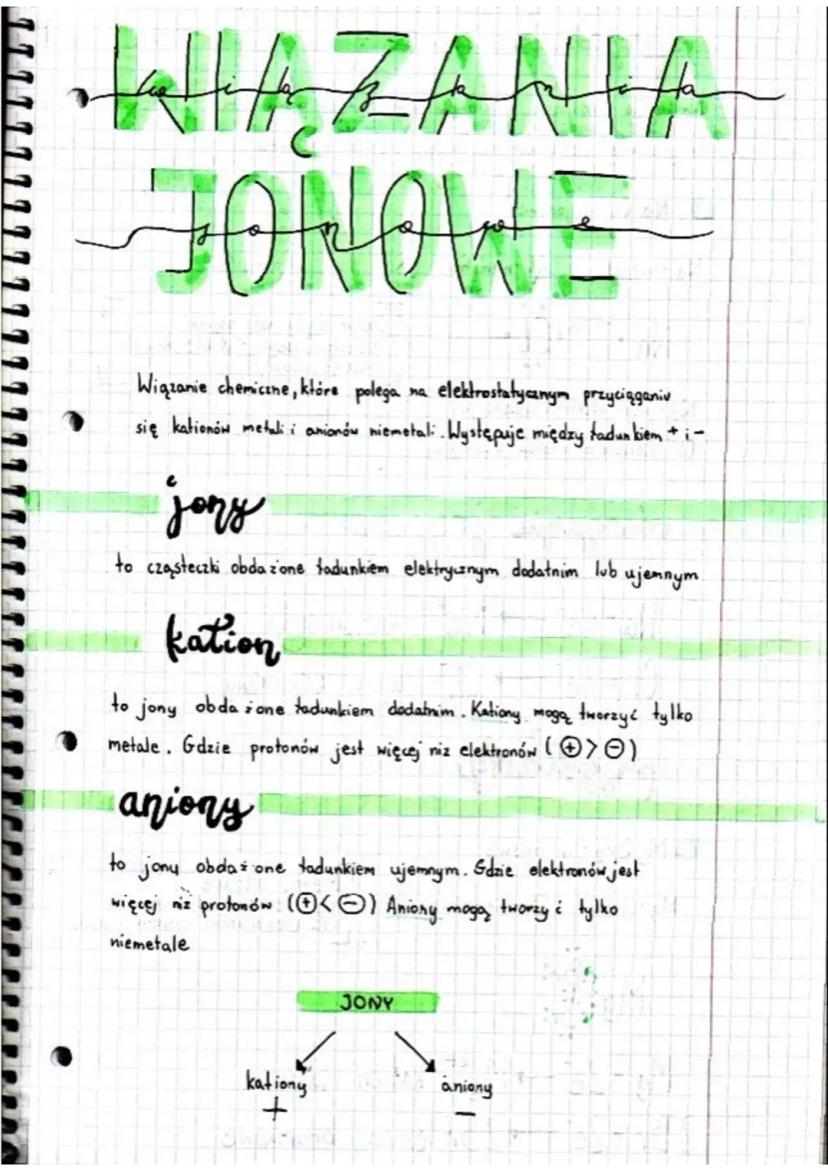 WIĄZANIA
wiązania
JONOWE
jonowe
Wiązanie chemiczne, które polega na elektrostatycznym przyciąganiu
się kationów metali i anionów niemetali. Występuje między ładunkiem + i -
jony
to cząsteczki obdażone ładunkiem elektrycznym dodatnim lub ujemnym
kation
to jony obdażone ładunkiem dodatnim. Kationy mogą tworzyć tylko
metale. Gdzie protonów jest więcej niż elektronów (⊕>⊖)
aniony
to jony obdażone ładunkiem ujemnym. Gdzie elektronów jest
więcej niż protonów (⊕<⊖) Aniony mogą tworzyć tylko
niemetale
JONY
kationy aniony
+ -